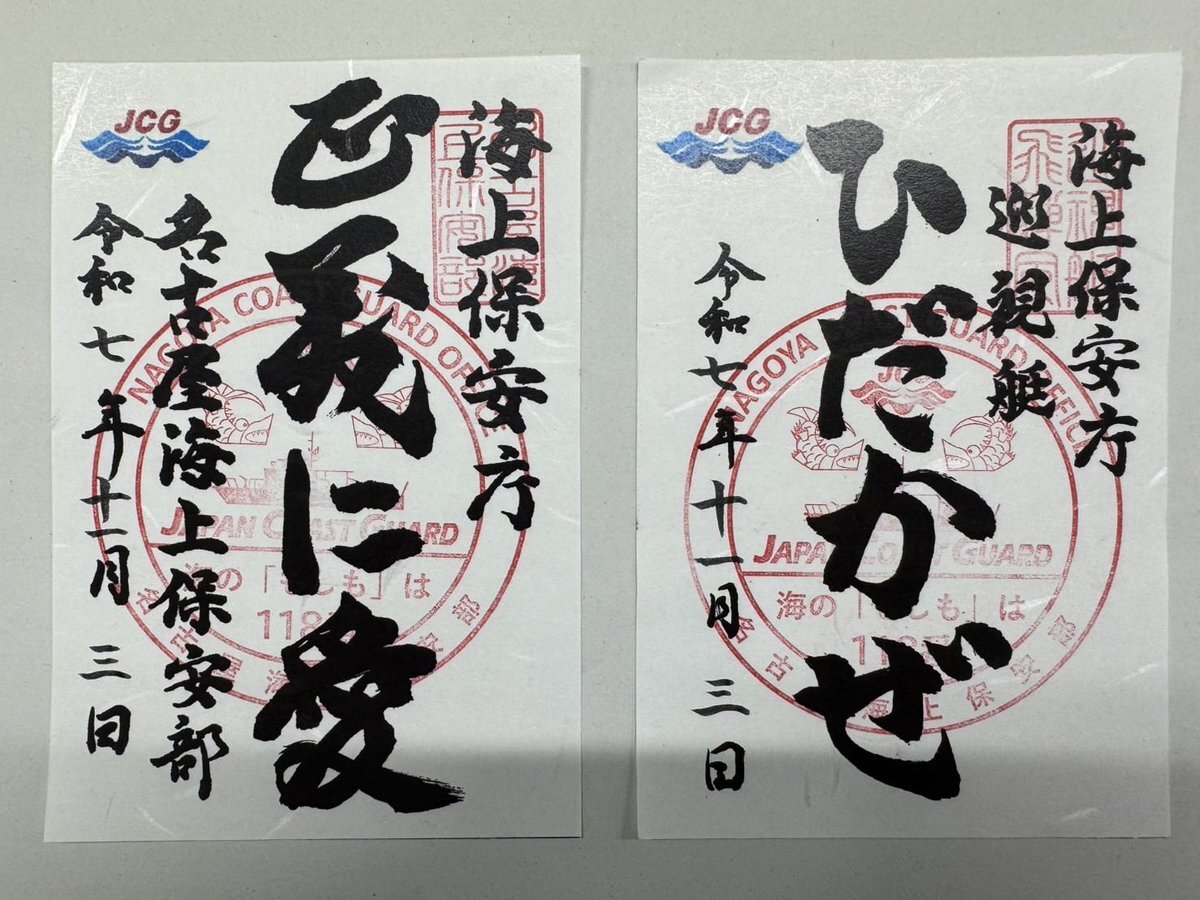 JCG
海上保安庁
正義に愛
名古屋海上保安部
令和七年十一月三日
NAGOYA COAST GUARD OFFICE
JAPAN COAST GUARD
海の「もしも」は
118
名古屋海上保安部
JCG
海上保安庁
巡視艇
ひだかぜ
令和七年十一月三日
NAGOYA COAST GUARD OFFICE
JCG
JAPAN COAST GUARD
海の「もしも」は
118
名古屋海上保安部